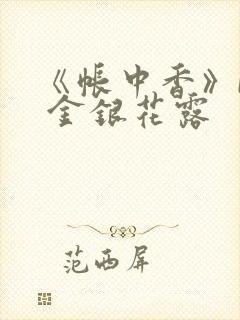 《帳中香》
金銀花露
范西屏